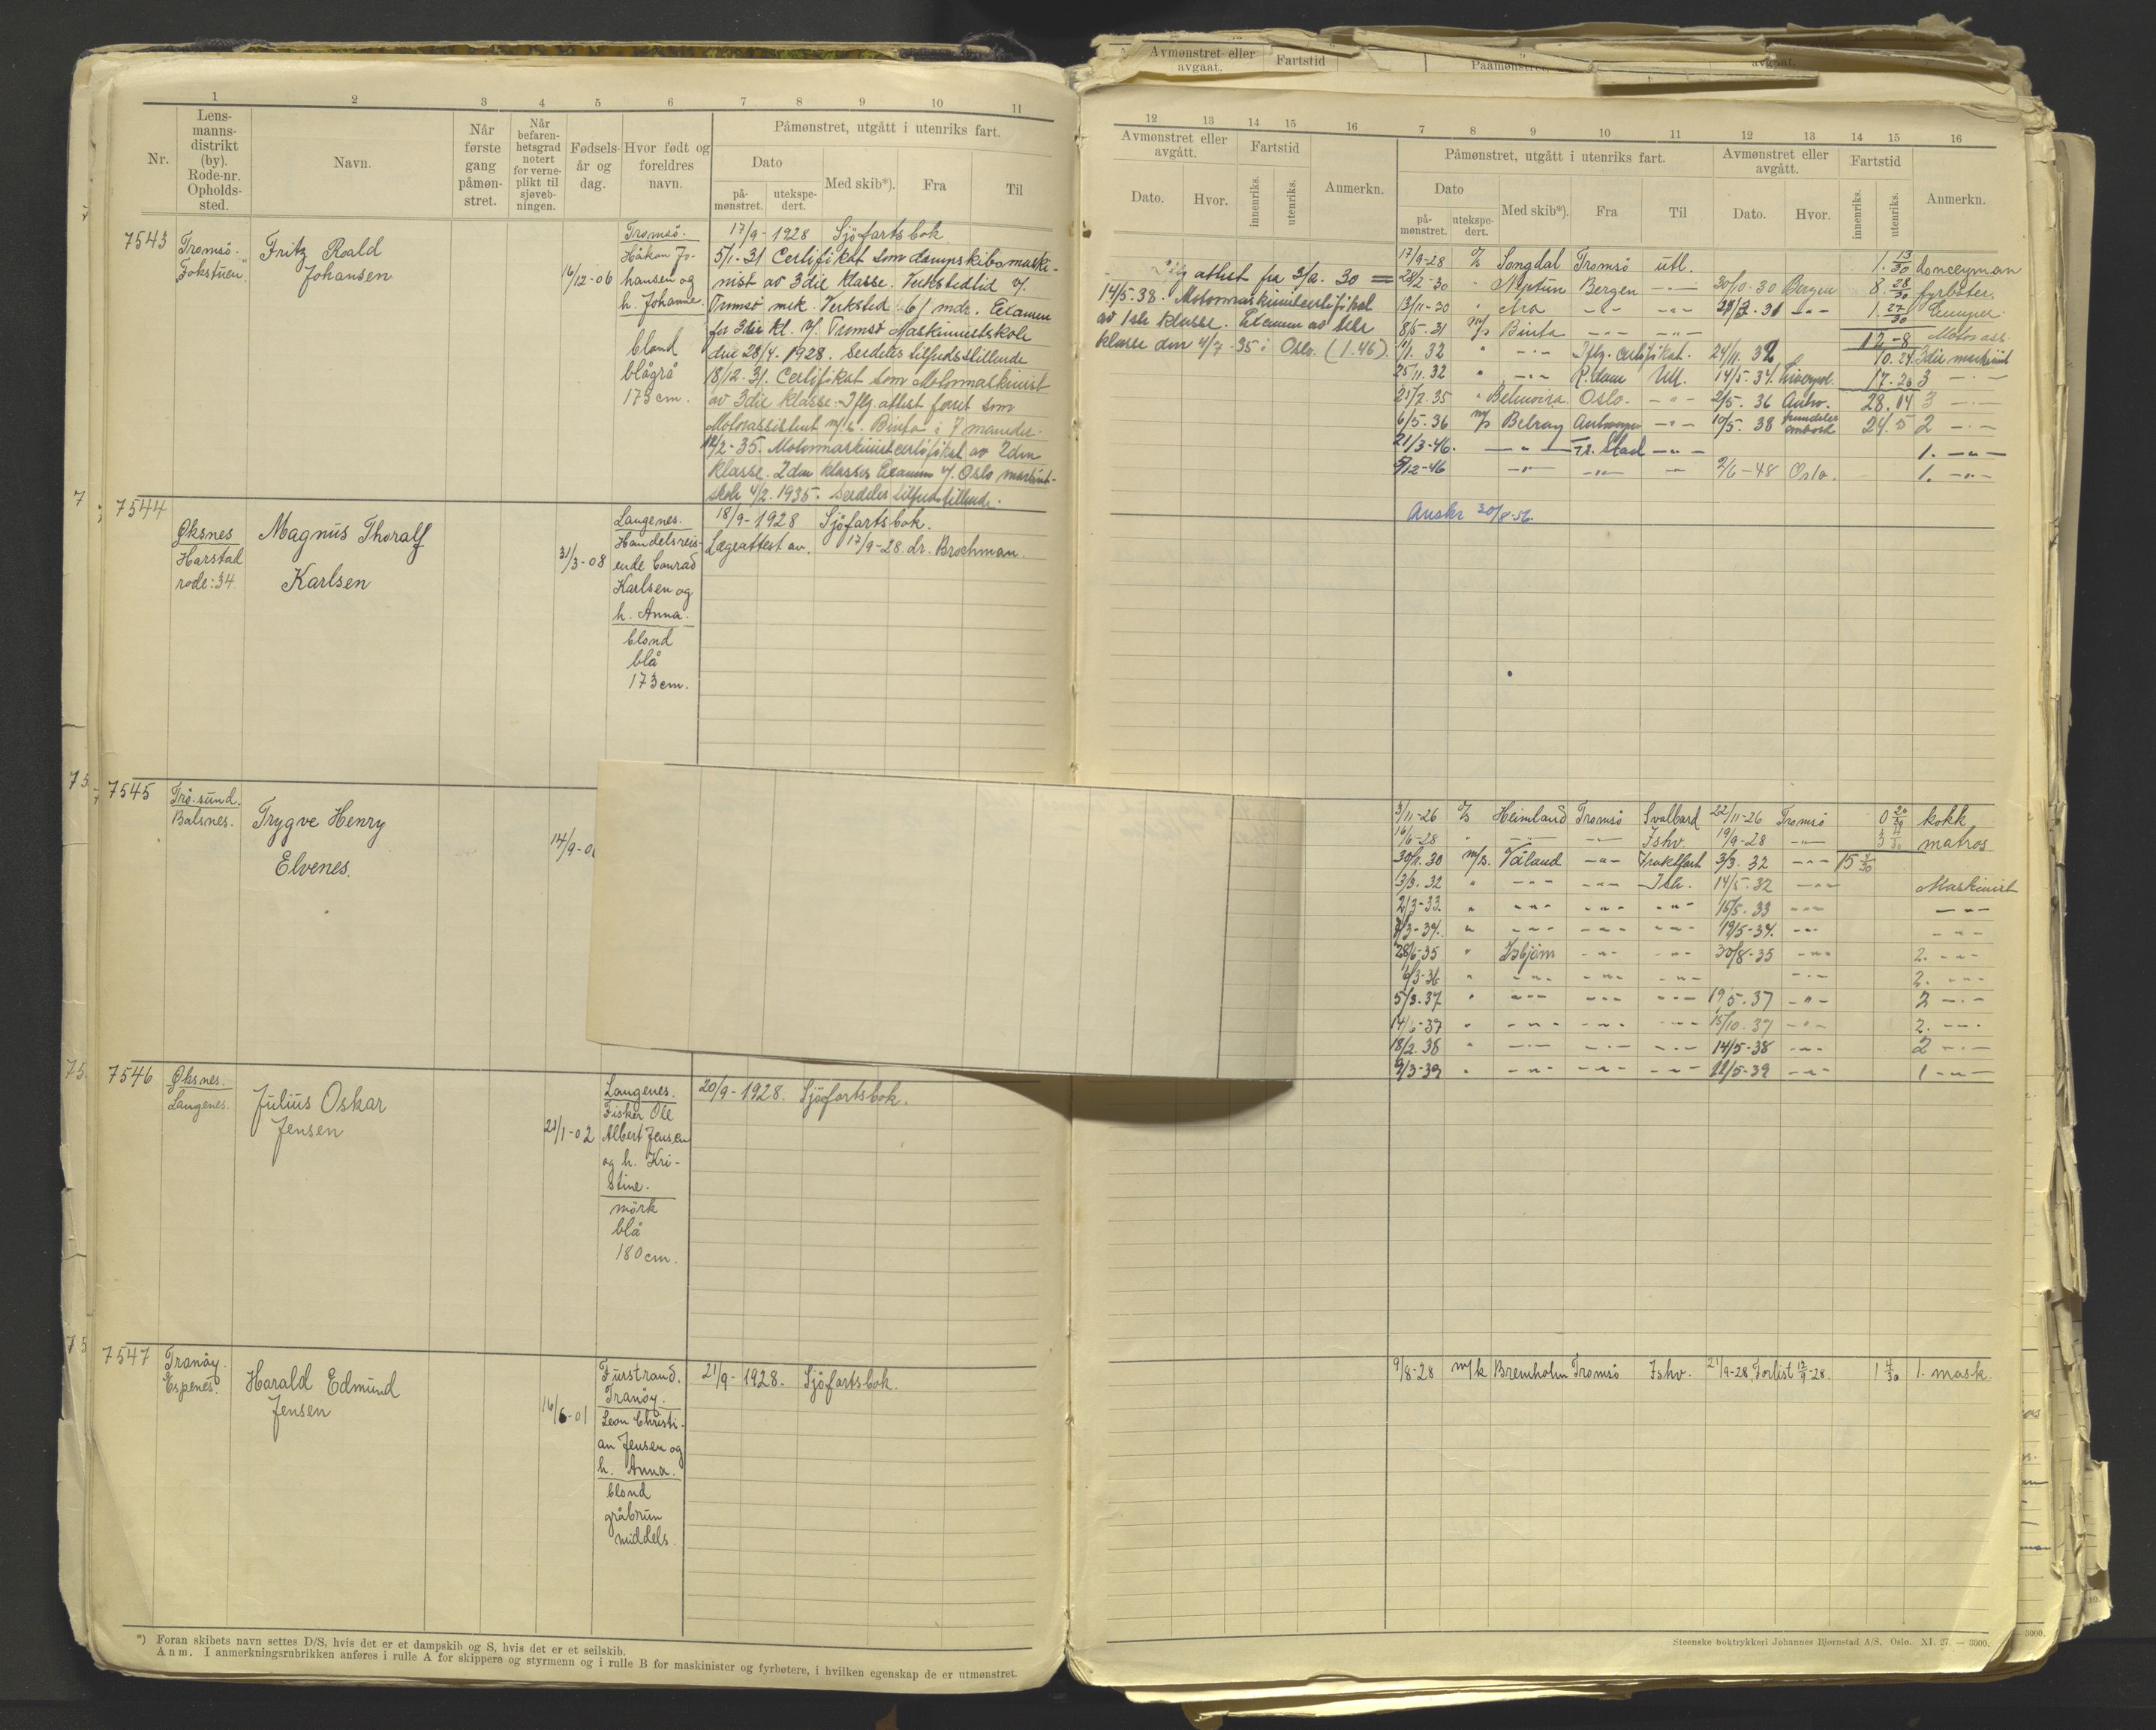 1 2 3 4 5 6 7 8 9 10 11
Nr.
Lensmanns-
distrikt
(by).
Rode-nr.
Opholds-
sted.
Navn.
Når
første
gang
påmøn-
stret.
Når
befaren-
hetsgrad
notert
for verne-
plikt til
sjøveb-
ningen.
Fødsels-
år og
dag.
Hvor født og
foreldres
navn.
Påmønstret, utgått i utenriks fart.
Dato
på-
mønstret.
utekspe-
dert.
Med skib*).
Fra
Til
7543
Tromsö.
"Fokstuen"
Fritz Roald
Johansen
16/12-06
Tromsö.
Håkon Jo-
hansen og
h. Johanne.
blond
blågrå
173 cm.
17/9-1928 Sjöfartsbok.
5/1-31 Certifikat som dampskibsmaski-
nist av 3die klasse. Verkstedtid v/
Tromsø mek. Verksted 61 mdr. Examen
for 3die kl. v/ Tromsø Maskinistskole
den 28/4-1928. Serdeles tilfredsstillende
18/12-31. Certifikat som Motormaskinist
av 3die klasse. Iflg. attest faret som
Motorassistent m/s. Binta i 7 maneder.
12/2-35. Motormaskinistcertifikat av 2den
klasse. 2den klasses Examen v/ Oslo maskinist-
skole 4/2. 1935. Serdeles tilfredstillende.
7544
Øksnes
Harstad
rode: 34.
Magnus Thoralf
Karlsen
31/3-08
Langenes.
Handelsreis-
ende Conrad
Karlsen og
h. Anna.
blond
blå
173 cm.
18/9-1928 Sjöfartsbok.
Lægeattest av. 17/9-28. dr. Brochman.
7545
Trö.sund.
Balsnes.
Trygve Henry
Elvenes.
14/9-0
7546
Øksnes.
Langenes.
Julius Oskar
Jensen
21/1-02
Langenes.
Fisker Ole
Albert Jensen
og h. Kri-
stine.
mörk
blå
180 cm.
20/9-1928. Sjöfartsbok.
7547
Tranöy.
Espenes.
Harald Edmund
Jensen
16/6-01
Furstrand.
Tranöy.
Leon Christi-
an Jensen og
h. Anna.
blond
gråbrun
middels.
21/9-1928. Sjöfartsbok.
*) Foran skibets navn settes D/S, hvis det er et dampskib og S, hvis det er et seilskib.
Anm. I anmerkningsrubrikken anføres i rulle A for skippere og styrmenn og i rulle B for maskinister og fyrbøtere, i hvilken egenskap de er utmønstret.
Avmønstret eller
avgaat.
Fartstid
12 13 14 15 16 7 8 9 10 11 12 13 14 15 16
Avmønstret eller
avgått.
Fartstid
Dato.
Hvor.
innenriks.
utenriks.
Anmerkn.
Påmønstret, utgått i utenriks fart.
Dato
på-
mønstret.
utekspe-
dert.
Med skib*).
Fra
Til
Avmønstret eller
avgått.
Dato.
Hvor.
Fartstid
innenriks.
utenriks.
Anmerkn.
attest fra 3/2. 30 =
14/5-38. Motormaskinistcertifikat
av 1ste klasse. Examen av 1ste
klasse den 4/7-35 i Oslo. (1.46).
17/9-28 D/S Songdal Tromsö utl. 1. 13/30 donceyman
28/2-30 " Neptun Bergen -"- 30/10-30 Bergen 8. 28/30 fyrböter.
13/11-30 " Ara -"- -"- -"- 1. 27/30 Lemper.
8/5. 31 M/s Binta -"- -"- 12-8 Motorass.
1/1. 32 " -"- Iflg. certifikat. 24/11. 32 10. 24 3die maskinist
25/11.32 " -"- R.dam Utl. 14/5-34. Liverpol. 17. 20 3 -"-
21/7.35 " Belmoira Oslo. -"- 2/5. 36 Antw. 28. 14 3 -"-
6/5. 36 M/s Belray Antwerpen -"- 10/5. 38 fremdeles ombord 24. 5 2 -"-
21/3-46. -"- Fr. Stad -"- 1. -"-
5/12-46 -"- -"- -"- 2/6-48 Oslo. 1. -"-
Avskr 30/8-56.
3/11-26 D/S Heimland Tromsö Svalbard 22/11-26 Tromsö 0 20/30 kokk
16/6-28 " -"- -"- Ishv. 19/9-28 -"- 3 4/30 matros
30/11. 30 M/s. Våland -"- Fraktfart 3/3. 32 -"- 15 3/30
13/3. 32 " -"- -"- Ish. 14/5-32 -"- Maskinist
21/3-33. " -"- -"- -"- 15/5. 33 -"- -"-
3/3-34. " -"- -"- -"- 19/5-34. -"- -"-
28/6-35 " Isbjörn -"- -"- 30/8-35 -"- 2. -"-
6/3-36 " -"- -"- -"- -"- 2. -"-
5/3-37 " -"- -"- -"- 19/5-37 -"- 2 -"-
14/6-37 " -"- -"- -"- 15/10-37 -"- 2. -"-
18/2.38 " -"- -"- -"- 14/5-38 -"- 2 -"-
9/3-39 " -"- -"- -"- 11/5-39 -"- 1 -"-
9/8-28 m/k Bremholm Tromsö Ishv. 21/9-28 Forlist 12/9-28. 1 4/30 1. mask.
Steenske boktrykkeri Johannes Bjørnstad A/S, Oslo. XI. 27. — 3000.